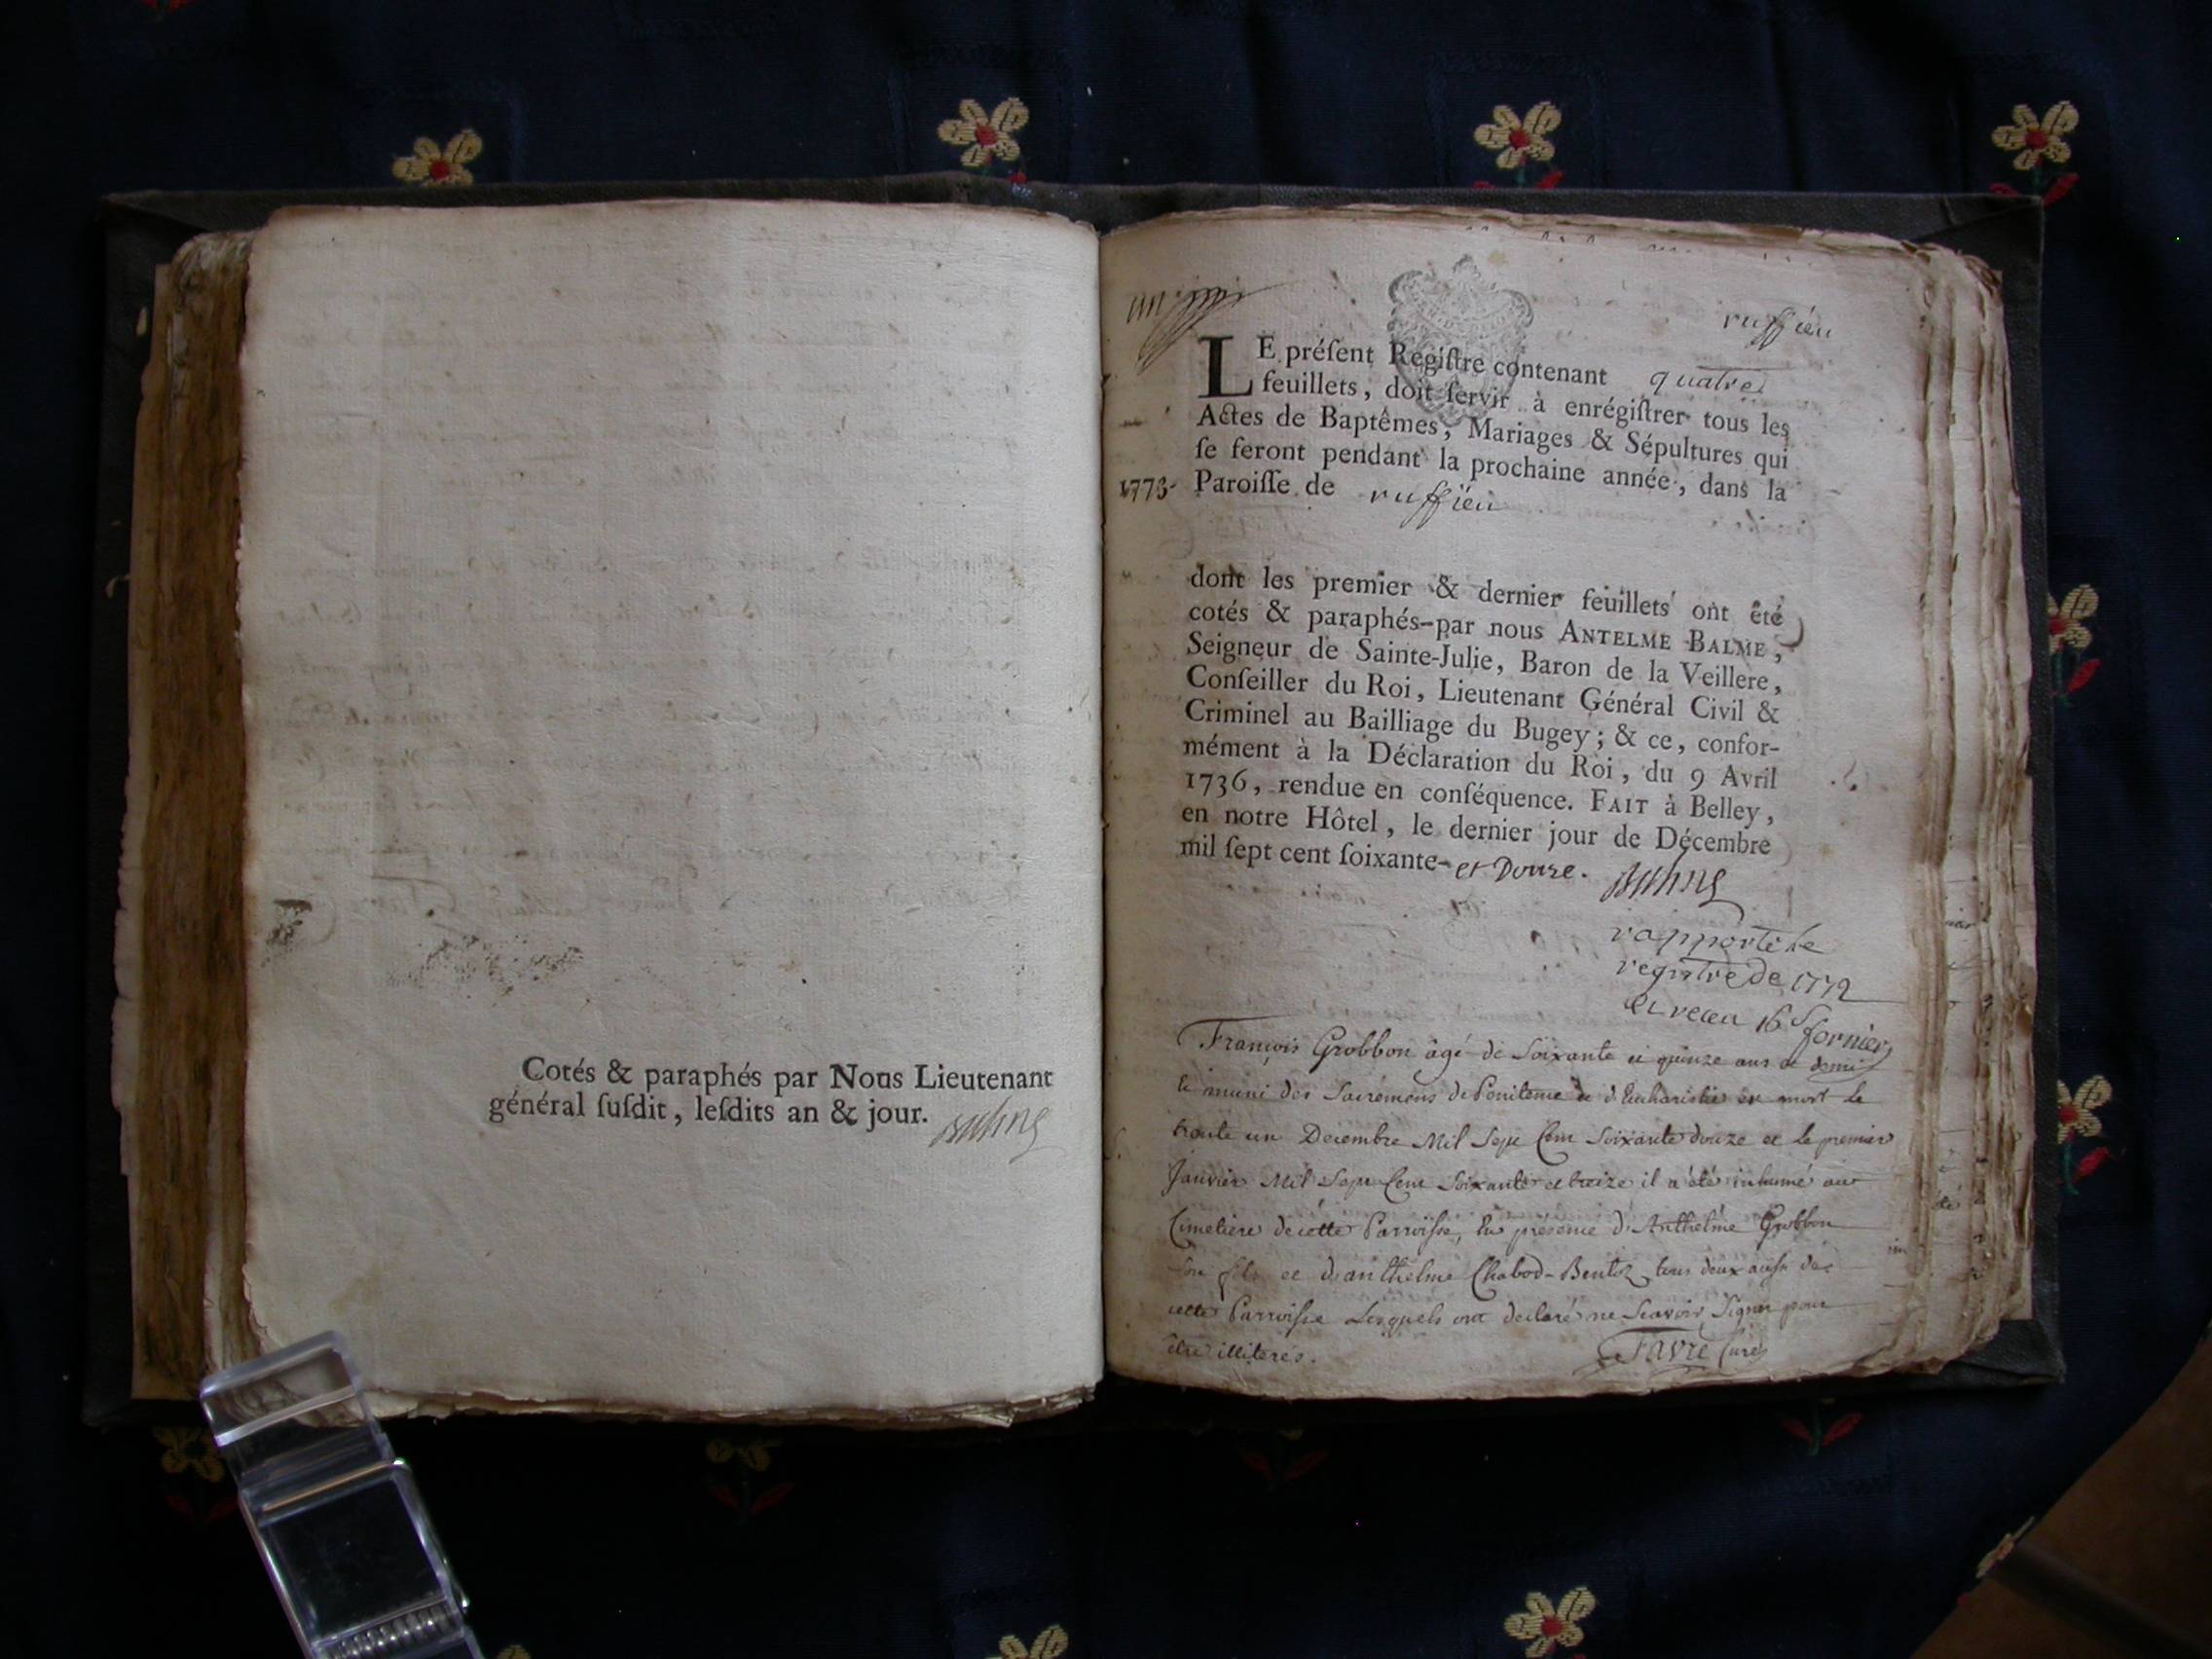 Cotés & paraphés par Nous Lieutenant
général ſuſdit, leſdits an & jour.
Balme
ruffieu
LE préſent Regiſtre contenant quatre
feuillets, doit ſervir à enrégiſtrer tous les
Actes de Baptêmes, Mariages & Sépultures qui
ſe feront pendant la prochaine année, dans la
1773. Paroiſſe de ruffieu
dont les premier & dernier feuillets ont été
cotés & paraphés par nous ANTELME BALME,
Seigneur de Sainte-Julie, Baron de la Veillere,
Conſeiller du Roi, Lieutenant Général Civil &
Criminel au Bailliage du Bugey; & ce, confor-
mément à la Déclaration du Roi, du 9 Avril
1736, rendue en conſéquence. FAIT à Belley,
en notre Hôtel, le dernier jour de Décembre
mil ſept cent ſoixante- et Douze. Balme
rapporté le
registre de 1772
et receu 16 s fornier
François Grobbon âgé de Soixante et quinze ans et demi
et muni des Sacremens de Penitence et d'Eucharistie est mort le
trente un Decembre Mil Sept Cent Soixante douze et le premier
Janvier Mil Sept Cent Soixante et treize il a été inhumé au
Cimetiere de cette Parroisse, En présence d'Anthelme Grobbon
son fils et d'anthelme Chabod-Bentoz tous deux aussi de
cette Parroisse Lesquels ont declaré ne Scavoir Signer pour
être illiterés. Favre Curé